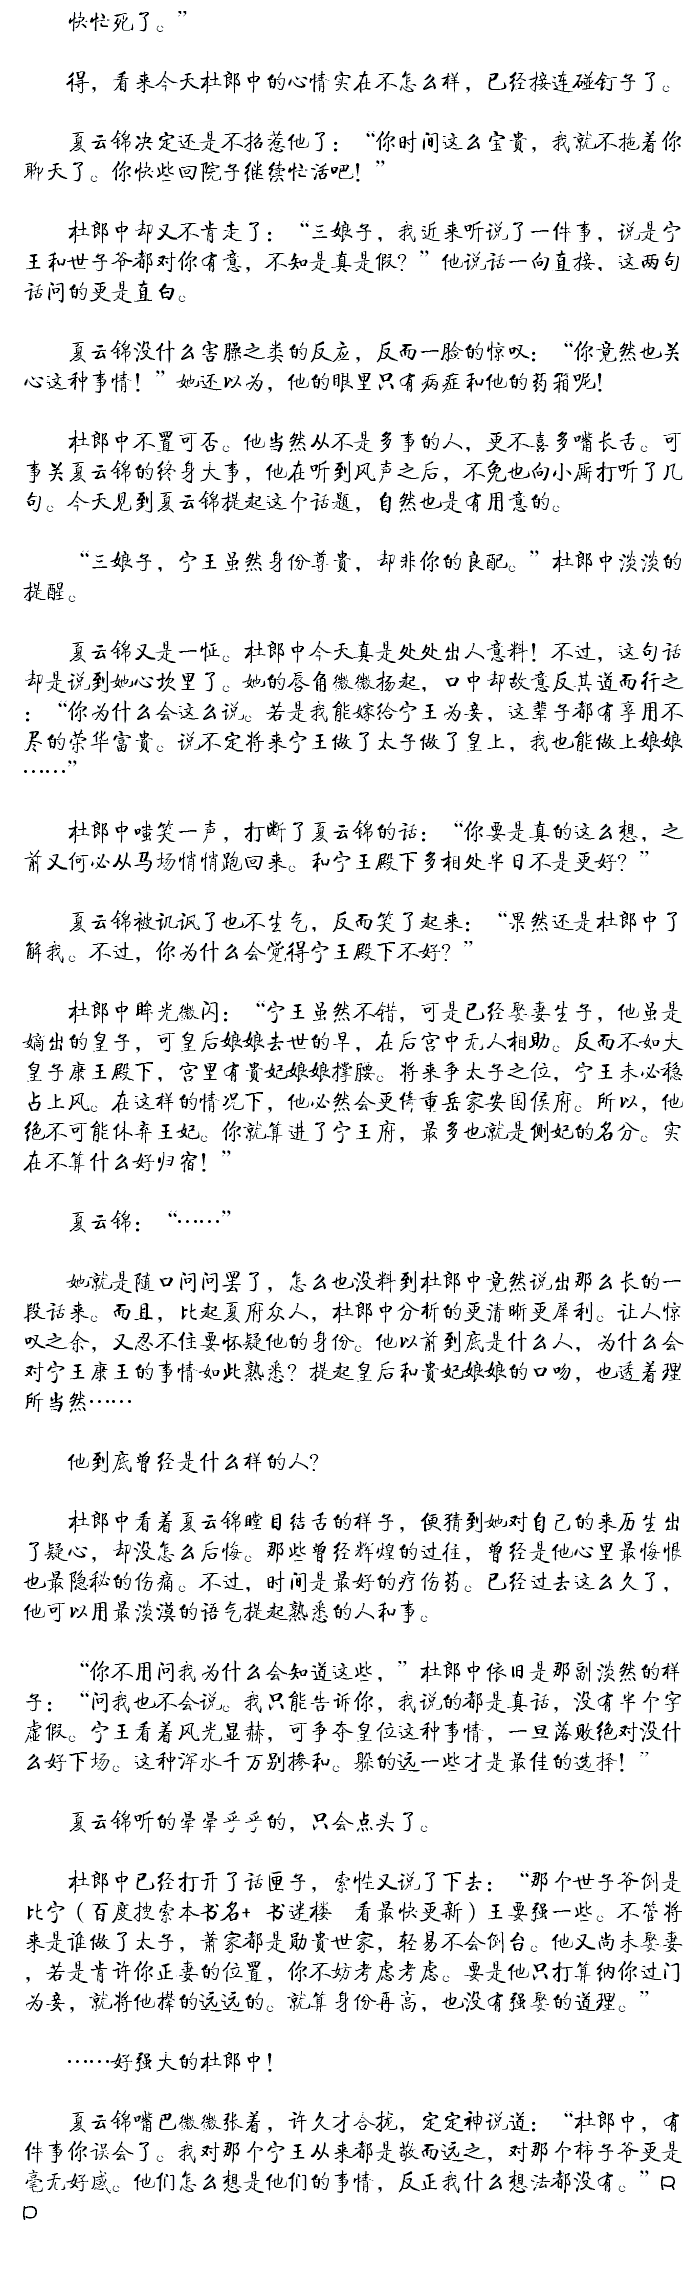 快忙死了。”
得，看来今天杜郎中的心情实在不怎么样，已经接连碰钉子了。
夏云锦决定还是不招惹他了：“你时间这么宝贵，我就不拖着你
聊天了。你快些回院子继续忙活吧！”
杜郎中却又不肯走了：“三娘子，我近来听说了一件事，说是宁
王和世子爷都对你有意，不知是真是假？”他说话一向直接，这两句
话问的更是直白。
夏云锦没什么害臊之类的反应，反而一脸的惊叹：“你竟然也关
心这种事情！”她还以为，他的眼里只有病症和他的药箱呢！
杜郎中不置可否。他当然从不是多事的人，更不喜多嘴长舌。可
事关夏云锦的终身大事，他在听到风声之后，不免也向小厮打听了几
句。今天见到夏云锦提起这个话题，自然也是有用意的。
“三娘子，宁王虽然身份尊贵，却非你的良配。”杜郎中淡淡的
提醒。
夏云锦又是一怔。杜郎中今天真是处处出人意料！不过，这句话
却是说到她心坎里了。她的唇角微微扬起，口中却故意反其道而行之
：“你为什么会这么说。若是我能嫁给宁王为妾，这辈子都有享用不
尽的荣华富贵。说不定将来宁王做了太子做了皇上，我也能做上娘娘
……”
杜郎中嗤笑一声，打断了夏云锦的话：“你要是真的这么想，之
前又何必从马场悄悄跑回来。和宁王殿下多相处半日不是更好？”
夏云锦被讥讽了也不生气，反而笑了起来：“果然还是杜郎中了
解我。不过，你为什么会觉得宁王殿下不好？”
杜郎中眸光微闪：“宁王虽然不错，可是已经娶妻生子，他虽是
嫡出的皇子，可皇后娘娘去世的早，在后宫中无人相助。反而不如大
皇子康王殿下，宫里有贵妃娘娘撑腰。将来争太子之位，宁王未必稳
占上风。在这样的情况下，他必然会更倚重岳家安国侯府。所以，他
绝不可能休弃王妃。你就算进了宁王府，最多也就是侧妃的名分。实
在不算什么好归宿！”
夏云锦：“……”
她就是随口问问罢了，怎么也没料到杜郎中竟然说出那么长的一
段话来。而且，比起夏府众人，杜郎中分析的更清晰更犀利。让人惊
叹之余，又忍不住要怀疑他的身份。他以前到底是什么人，为什么会
对宁王康王的事情如此熟悉？提起皇后和贵妃娘娘的口吻，也透着理
所当然……
他到底曾经是什么样的人？
杜郎中看着夏云锦瞠目结舌的样子，便猜到她对自己的来历生出
了疑心，却没怎么后悔。那些曾经辉煌的过往，曾经是他心里最悔恨
也最隐秘的伤痛。不过，时间是最好的疗伤药。已经过去这么久了，
他可以用最淡漠的语气提起熟悉的人和事。
“你不用问我为什么会知道这些，”杜郎中依旧是那副淡然的样
子：“问我也不会说。我只能告诉你，我说的都是真话，没有半个字
虚假。宁王看着风光显赫，可争夺皇位这种事情，一旦落败绝对没什
么好下场。这种浑水千万别掺和。躲的远一些才是最佳的选择！”
夏云锦听的晕晕乎乎的，只会点头了。
杜郎中已经打开了话匣子，索性又说了下去：“那个世子爷倒是
比宁（百度搜索本书名+ 书迷楼 看最快更新）王要强一些。不管将
来是谁做了太子，萧家都是勋贵世家，轻易不会倒台。他又尚未娶妻
，若是肯许你正妻的位置，你不妨考虑考虑。要是他只打算纳你过门
为妾，就将他撵的远远的。就算身份再高，也没有强娶的道理。”
……好强大的杜郎中！
夏云锦嘴巴微微张着，许久才合拢，定定神说道：“杜郎中，有
件事你误会了。我对那个宁王从来都是敬而远之，对那个柿子爷更是
毫无好感。他们怎么想是他们的事情，反正我什么想法都没有。”R
P